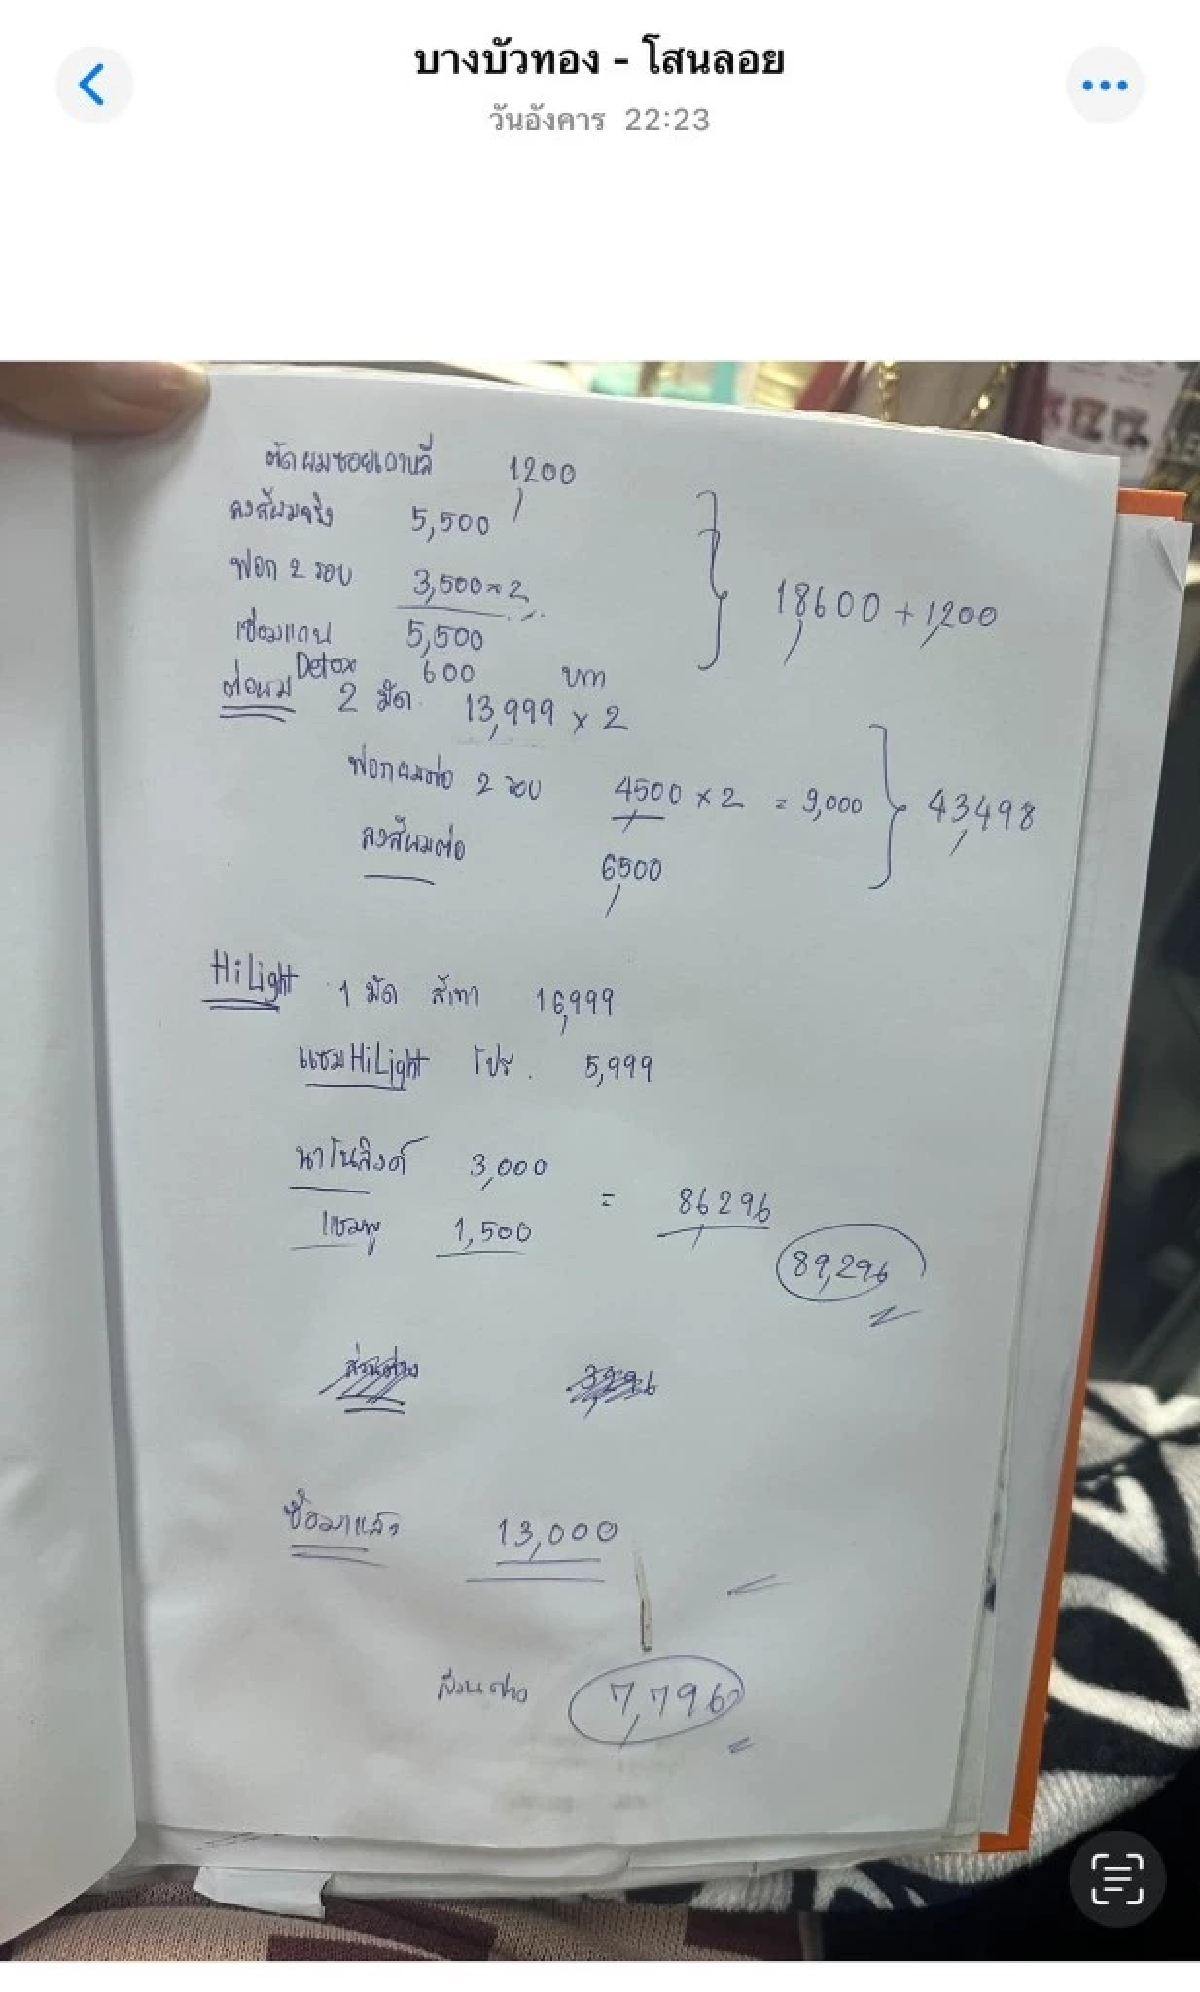 บางบัวทอง - โสนลอย
วันอังคาร 22:23
ตัดผมซอยเกาหลี 1200
ลงสีผมจริง 5,500
ฟอก 2 รอบ 3,500 × 2
18,600 + 1,200
เชื่อมแกน 5,500
Detox 600 บาท
ต่อผม 2 มัด 13,999 × 2
ฟอกผมต่อ 2 รอบ 4500 × 2 = 9,000
43,498
ลงสีผมต่อ 6,500
HiLight 1 มัด สีเทา 16,999
แซม HiLight โปร. 5,999
นาโนลิงค์ 3,000
= 86,296
แชมพู 1,500
89,296
ส่วนต่าง
ซื้อมาแล้ว 13,000
ส่วนต่าง 7,796